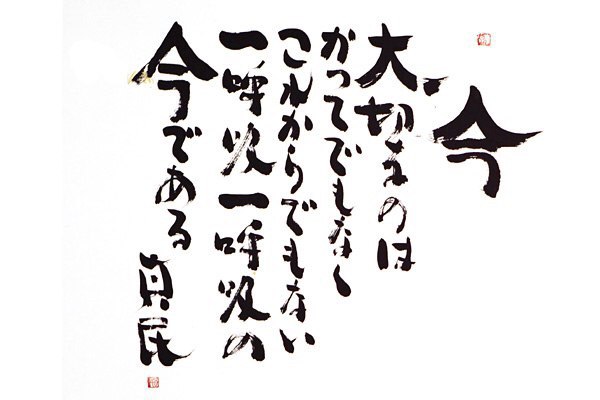 今
大切なのは
かつてでもなく
これからでもない
一呼吸一呼吸の
今である
真民